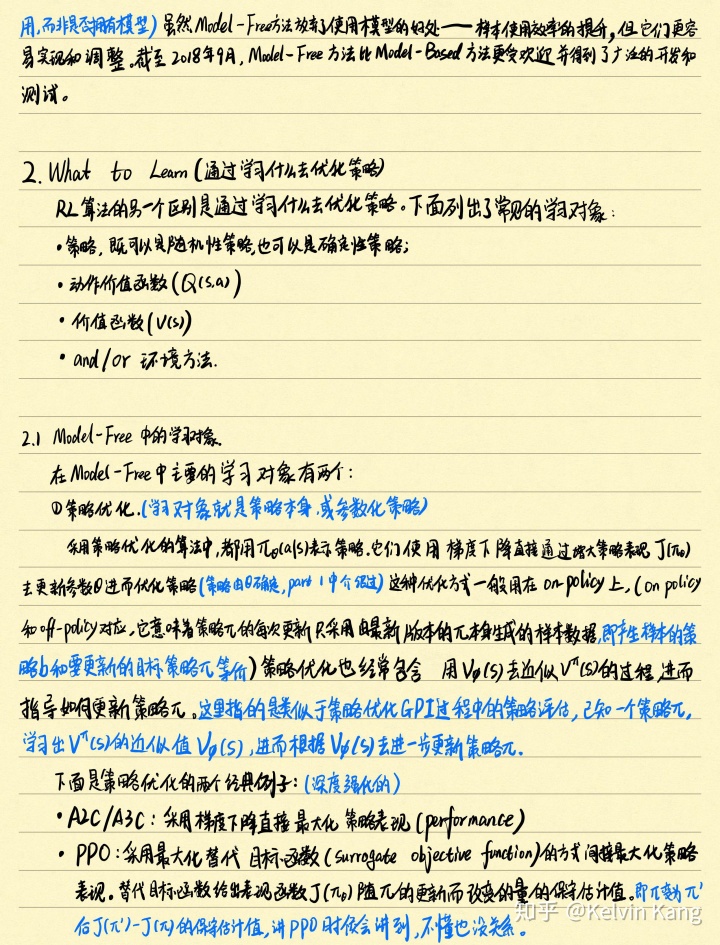 用,而非是否拥有模型) 虽然Model-Free方法放弃了使用模型的好处——样本使用效率的提升,但它们更容
易实现和调整。截至2018年9月,Model-Free方法比Model-Based方法更受欢迎并得到了广泛的开发和
测试。
2. What to Learn (通过学习什么去优化策略)
RL算法的另一个区别是通过学习什么去优化策略。下面列出了常见的学习对象:
·策略,既可以是随机性策略,也可以是确定性策略;
·动作价值函数(Q(s,a))
·价值函数(V(s))
·and/or 环境方法.
2.1 Model-Free中的学习对象.
在Model-Free中主要的学习对象有两个:
①策略优化.(学习对象就是策略本身,或参数化策略)
采用策略优化的算法中,都用π_θ(a|s)表示策略.它们使用梯度下降直接通过增大策略表现J(π_θ)
去更新参数θ进而优化策略(策略由θ确定,part 1中介绍过)这种优化方式一般用在on-policy上,(on policy
和off-policy对应,它意味着策略π的每次更新只采用由最新版本的π本身生成的样本数据,即产生样本的策
略b和要更新的目标策略π等价)策略优化也经常包含 用V_φ(s)去近似V^π(s)的过程,进而
指导如何更新策略π。这里指的是类似于策略优化GPI过程中的策略评估,已知一个策略π,
学习出V^π(s)的近似值V_φ(s),进而根据V_φ(s)去进一步更新策略π.
下面是策略优化的两个经典例子:(深度强化的)
·A2C/A3C:采用梯度下降直接最大化策略表现(performance)
·PPO:采用最大化替代目标函数(surrogate objective function)的方式间接最大化策略
表现。替代目标函数给出表现函数J(π_θ)随π的更新而改变的量的保守估计值。即π变为π'
后J(π')-J(π)的保守估计值,讲PPO时候会讲到,不懂也没关系。
知乎 @Kelvin Kang